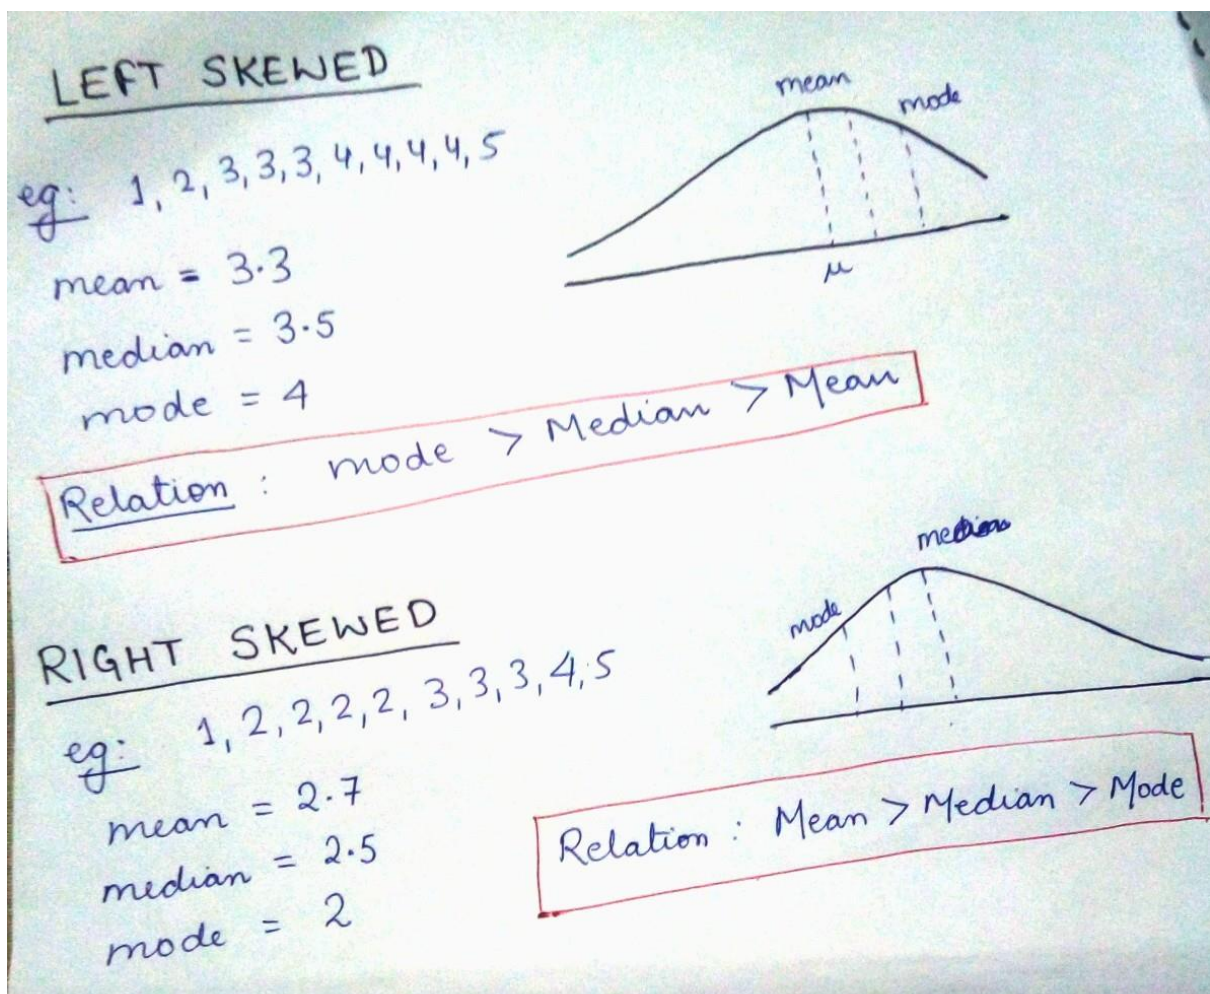 LEFT SKEWED
mean
mode
eg: 1, 2, 3, 3, 3, 4, 4, 4, 4, 5
μ
mean = 3.3
median = 3.5
mode = 4
Relation : mode > Median > Mean
RIGHT SKEWED
mode
eg: 1, 2, 2, 2, 2, 3, 3, 3, 4, 5
mean = 2.7
median = 2.5
mode = 2
Relation : Mean > Median > Mode